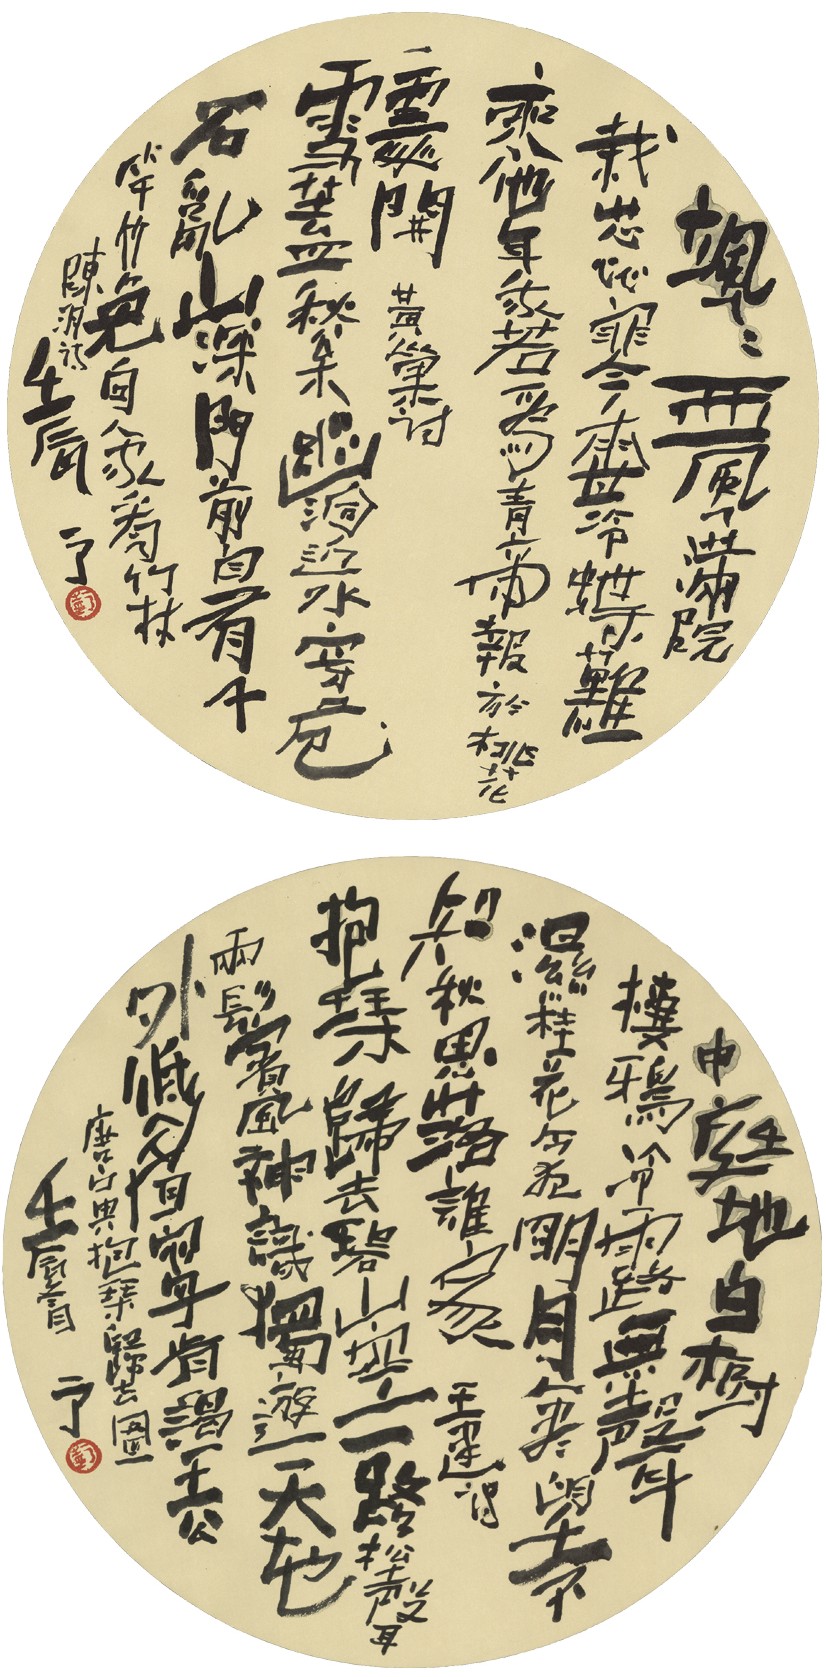 颯〻西風滿院
栽蕊寒香冷蝶難
來他年我若爲青帝報於桃花
一處開 黃巢詩
雲蓋秋松幽洞近水穿危
石亂山深門前自有千
竿竹免向人家看竹林
陳羽詩
壬辰 予
中庭地白樹
棲鴉冷露無聲
濕桂花今夜明月人盡望不
知秋思落誰家 王建詩
抱琴歸去碧山空一路松聲
兩鬢風神識獨遊天地
外低眉寧肯謁王公
唐寅抱琴歸去圖
壬辰 予